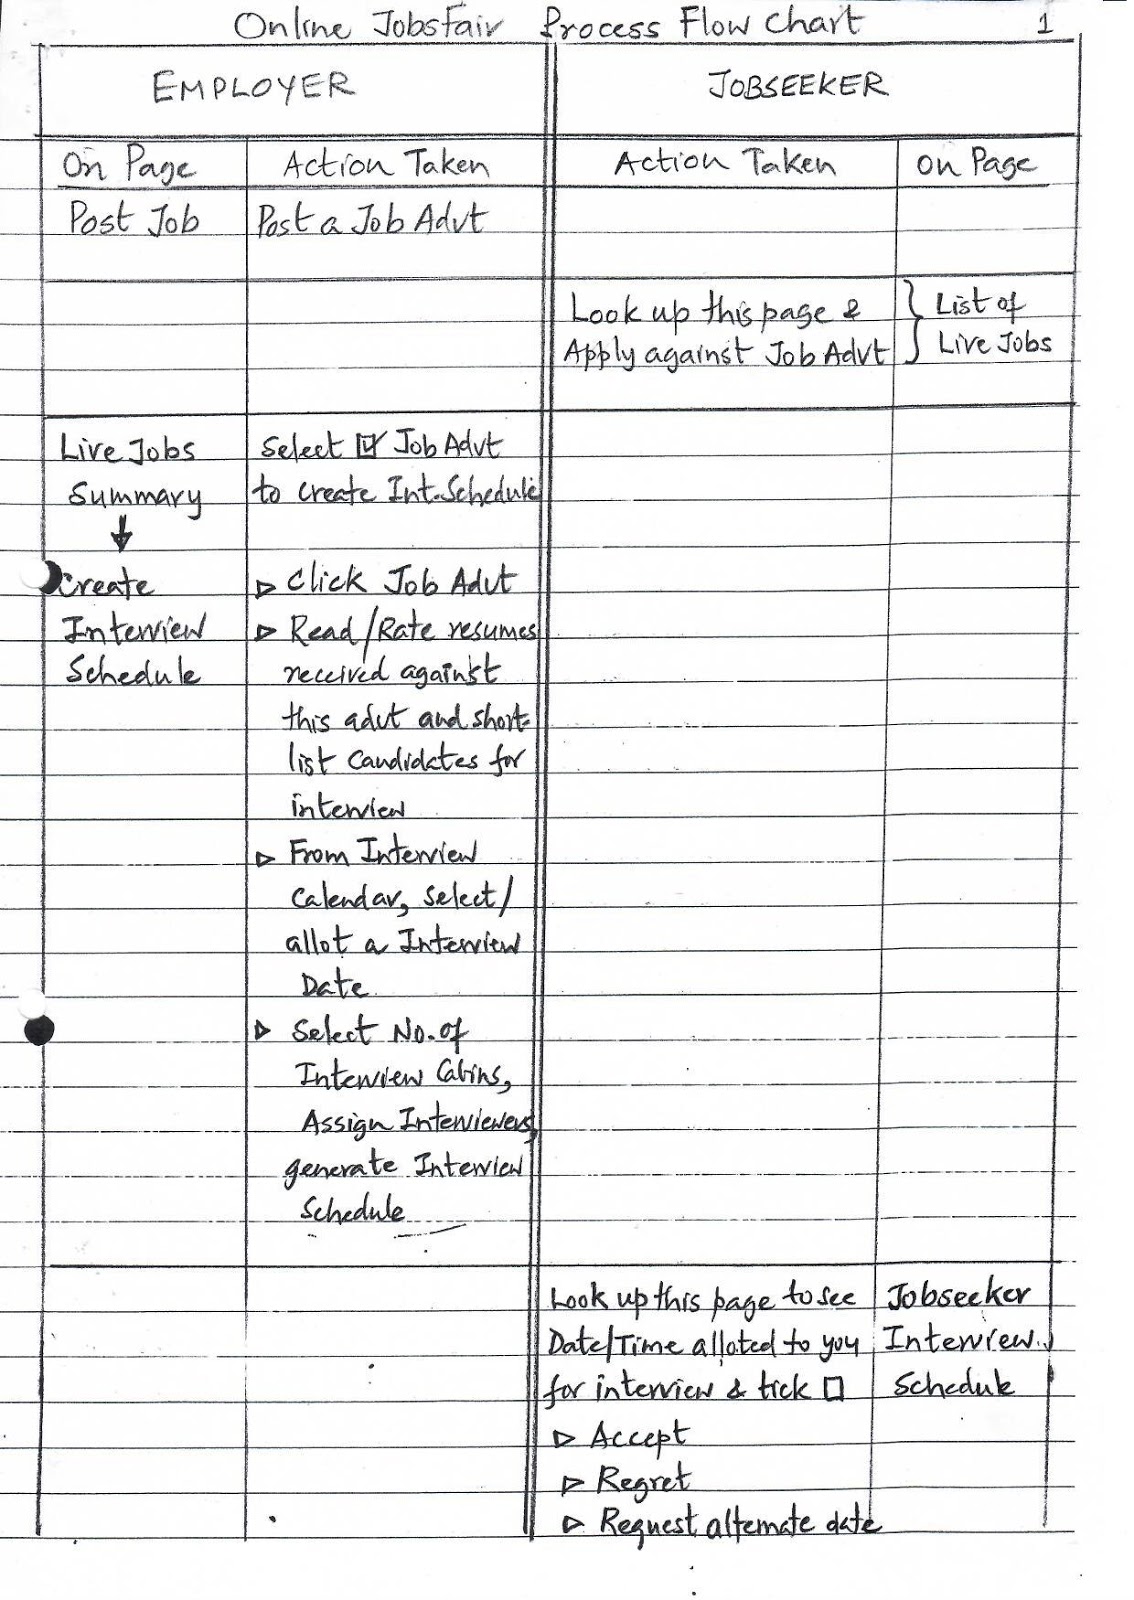 Online JobsFair Process Flow Chart 1
EMPLOYER JOBSEEKER
On Page Action Taken Action Taken On Page
Post Job Post a Job Advt
Look up this page & List of
Apply against Job Advt Live Jobs
Live Jobs Select ☑ Job Advt
Summary to create Int. Schedule
↓
Create ▷ Click Job Advt
Interview ▷ Read/Rate resumes
Schedule received against
this advt and short-
list candidates for
interview
▷ From Interview
Calendar, select/
allot a Interview
Date
▷ Select No. of
Interview Cabins,
Assign Interviewers,
generate Interview
Schedule
Look up this page to see Jobseeker
Date/Time alloted to you Interview
for interview & tick ☐ Schedule
▷ Accept
▷ Regret
▷ Request alternate date